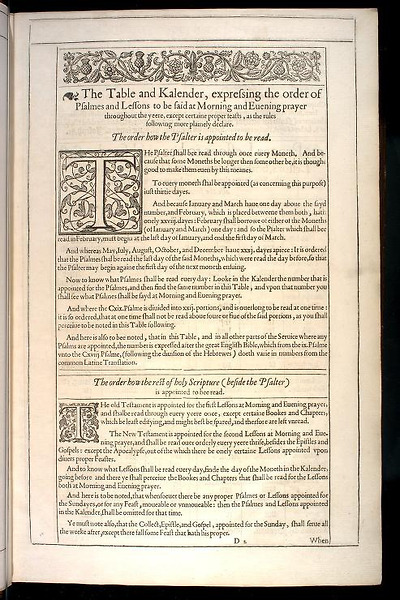 The Table and Kalender, expressing the order of
Psalmes and Lessons to be said at Morning and Euening prayer
throughout the yeere, except certaine proper feasts, as the rules
following more plainely declare.
The order how the Psalter is appointed to be read.
THe Psalter shall bee read through once euery Moneth, And be-
cause that some Moneths be longer then some other be, it is thought
good to make them euen by this meanes.
To euery moneth shall be appointed (as concerning this purpose)
iust thirtie dayes.
And because Ianuary and March haue one day aboue the sayd
number, and February, which is placed betweene them both, hath
onely xxviij. dayes: February shall borrowe of either of the Moneths
(of Ianuary and March) one day: and so the Psalter which shall bee
read in February, must begin at the last day of Ianuary, and end the first day of March.
And whereas May, Iuly, August, October, and December haue xxxj. dayes apiece: It is ordered
that the Psalmes shal be read the last day of the said Moneths, which were read the day before, so that
the Psalter may begin againe the first day of the next moneth ensuing.
Now to know what Psalmes shall be read euery day: Looke in the Kalender the number that is
appointed for the Psalmes, and then find the same number in this Table, and vpon that number you
shall see what Psalmes shall be sayd at Morning and Euening prayer.
And where the Cxix. Psalme is diuided into xxij. portions, and is ouerlong to be read at one time:
it is so ordered, that at one time shall not be read aboue foure or fiue of the said portions, as you shall
perceiue to be noted in this Table following.
And here is also to bee noted, that in this Table, and in all other parts of the Seruice where any
Psalmes are appointed, the number is expressed after the great English Bible, which from the ix. Psalme
vnto the Cxlviij. Psalme, (following the diuision of the Hebrewes) doeth varie in numbers from the
common Latine Translation.
The order how the rest of holy Scripture (beside the Psalter)
is appointed to bee read.
THe old Testament is appointed for the first Lessons at Morning and Euening prayer,
and shalbe read through euery yeere once, except certaine Bookes and Chapters,
which be least edifying, and might best be spared, and therefore are left vnread.
The New Testament is appointed for the second Lessons at Morning and Eue-
ning prayer, and shall be read ouer orderly euery yeere thrise, besides the Epistles and
Gospels: except the Apocalypse, out of the which there be onely certaine Lessons appointed vpon
diuers proper Feastes.
And to know what Lessons shall be read euery day, finde the day of the Moneth in the Kalender
going before and there ye shall perceiue the Bookes and Chapters that shall be read for the Lessons
both at Morning and Euening prayer.
And here is to be noted, that whensoeuer there be any proper Psalmes or Lessons appointed for
the Sundayes, or for any Feast, moueable or vnmoueable: then the Psalmes and Lessons appointed
in the Kalender, shall be omitted for that time.
Ye must note also, that the Collect, Epistle, and Gospel, appointed for the Sunday, shall serue all
the weeke after, except there fall some Feast that hath his proper.
D 2. When